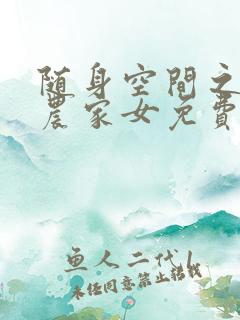 随身空間之
農家女免費
魚人二代\
未經同意禁止轉載